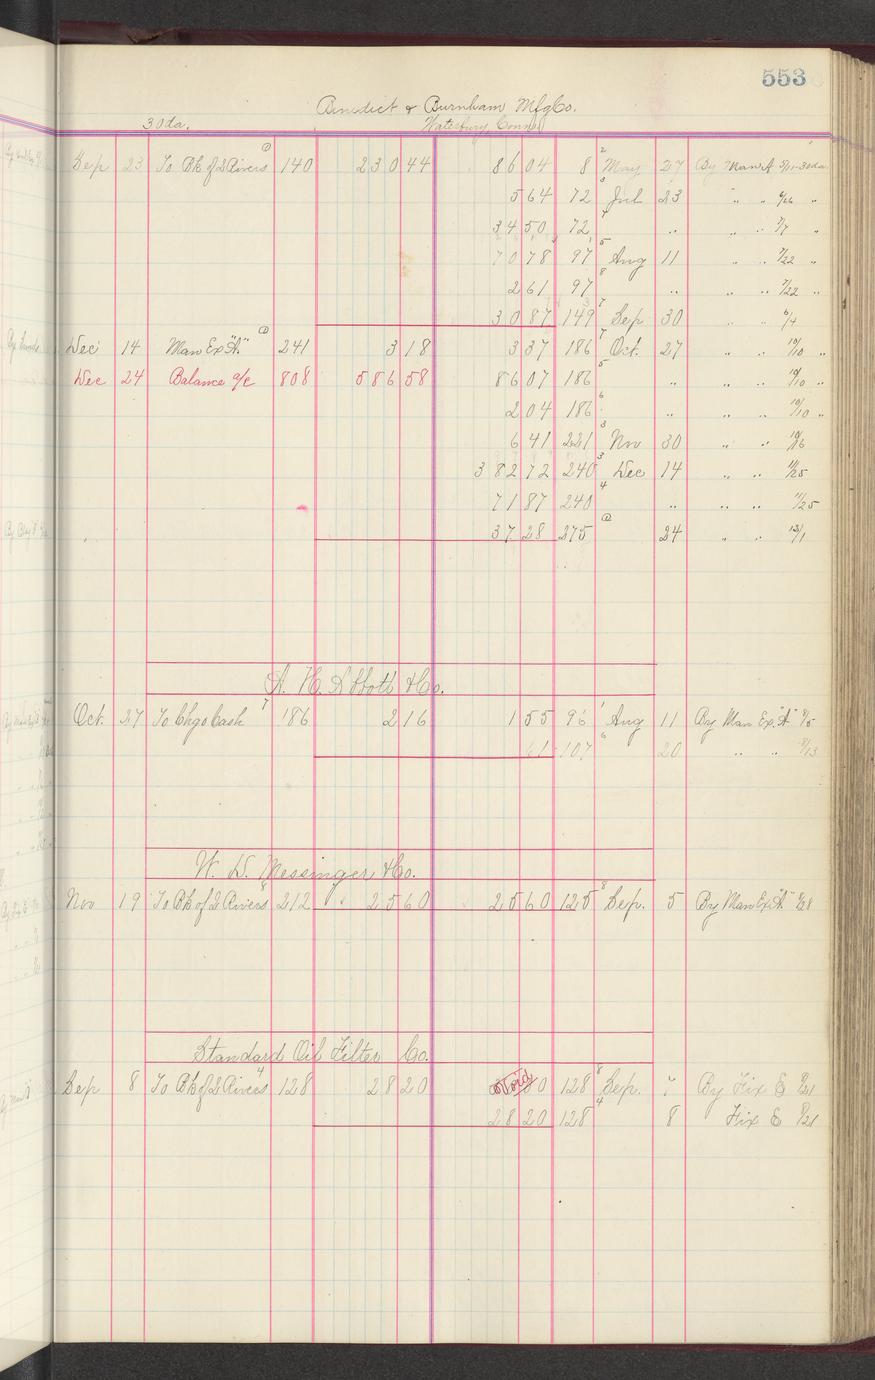 553
Benedict & Burnham Mfg Co.
30da. Waterbury Conn.
Sep 23 To Bk of 2 Rivers 140 230 44 86 04 8 May 27 By Man A 5/11-30da
5 64 72 Jul 23 " " 6/26 "
34 50 72 " " " 7/7 "
70 78 97 Aug 11 " " 7/22 "
2 61 97 " " " 7/22 "
30 87 149 Sep 30 " "
Dec 14 Man Ex "A" 241 3 18 3 37 186 Oct. 27 " " 10/10 "
Dec 24 Balance a/c 808 586 58 86 07 186 " " " 10/10 "
2 04 186 " " " 10/10 "
6 41 221 Nov 30 " "
382 72 240 Dec 14 " " 11/25
71 87 240 " " " 11/25
37 28 275 24 " " 12/1
A. H. Abbott & Co.
Oct. 27 To Chgo Cash 186 2 16 1 55 96 Aug 11 By Man Ex. "A" 8/5
61 107 20 " " 8/13
W. D. Messinger & Co.
Nov 19 To Bk of 2 Rivers 212 25 60 25 60 125 Sep. 5 By Man Ex "A" 8/28
Standard Oil Filter Co.
Sep 8 To Bk of 2 Rivers 128 28 20 Void 128 Sep. 7 By Fix E 8/21
28 20 128 8 Fix E 8/21